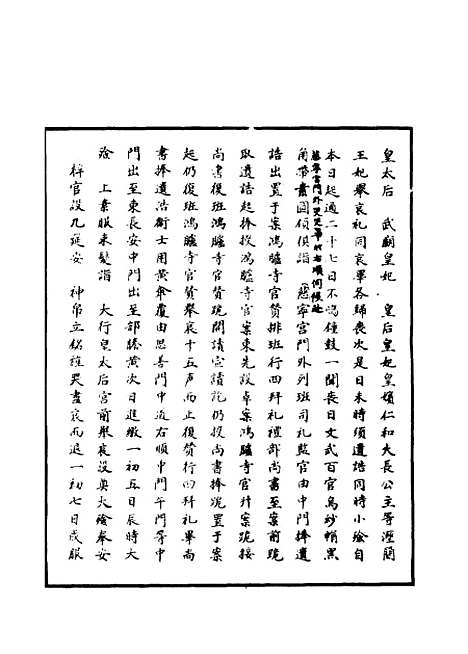 皇太后　武廟皇妃　皇后皇妃皇嬪仁和大長公主等瀝簡
王妃舉哀礼同哀畢各歸喪次是日未時頒遺誥同時小殮自
本日起過二十七日不鳴鐘鼓一聞喪日文武百官烏紗帽黑
角帶素圓領俱詣慈寧宮門外列班司礼監官由中門捧遺
誥出置于案鴻臚寺官贊排班行四拜礼禮部尚書至案前跪
取遺誥起捧授鴻臚寺官案東先設卓案鴻臚寺官升案跪接
尚書復班鴻臚寺官贊跪開讀宣讀訖仍授尚書捧跪置于案
起仍復班鴻臚寺官贊舉哀十五声而止復贊行四拜礼畢尚
書捧遺誥衛士用黃傘覆由思善門中道右順中門午門等中
門出至東長安中門出至部謄黃次日進繳一初五日辰時大
殮　上素服未髮詣　大行皇太后宮前舉哀設奠大殮奉安
梓宮設九筵安　神帛立銘旌哭盡哀而退一初七日成服